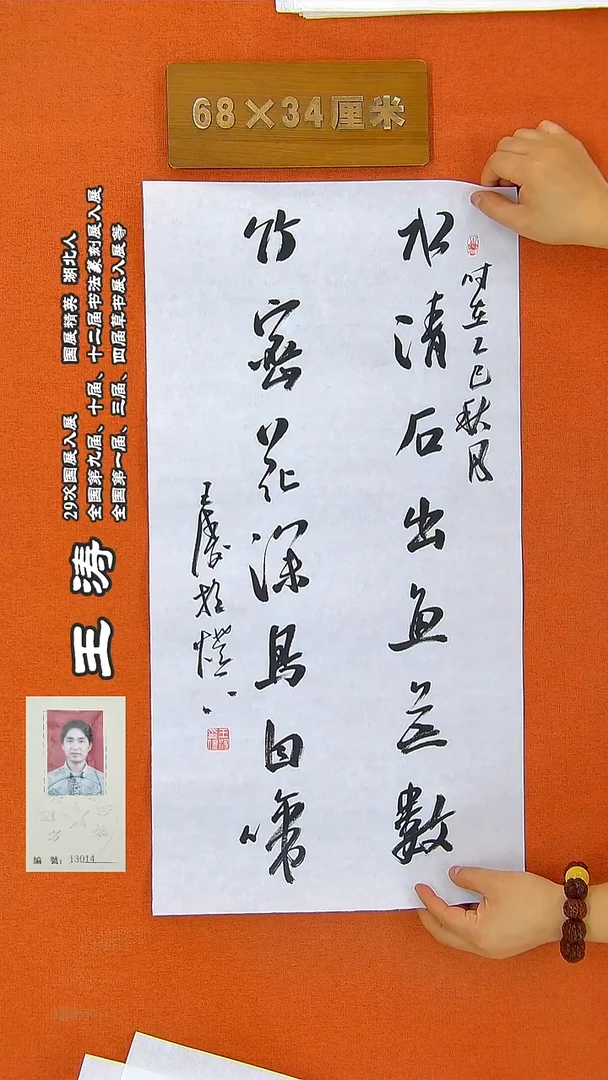 68×34厘米
时在乙巳秋月
水清石出鱼无数
竹密花深鸟自啼
王涛
29次国展入展 國展精英 湖北人
全国第九届、十届、十二届书法篆刻展入展
全国第一届、三届、四届草书展入展等
王涛
編 號: 13014